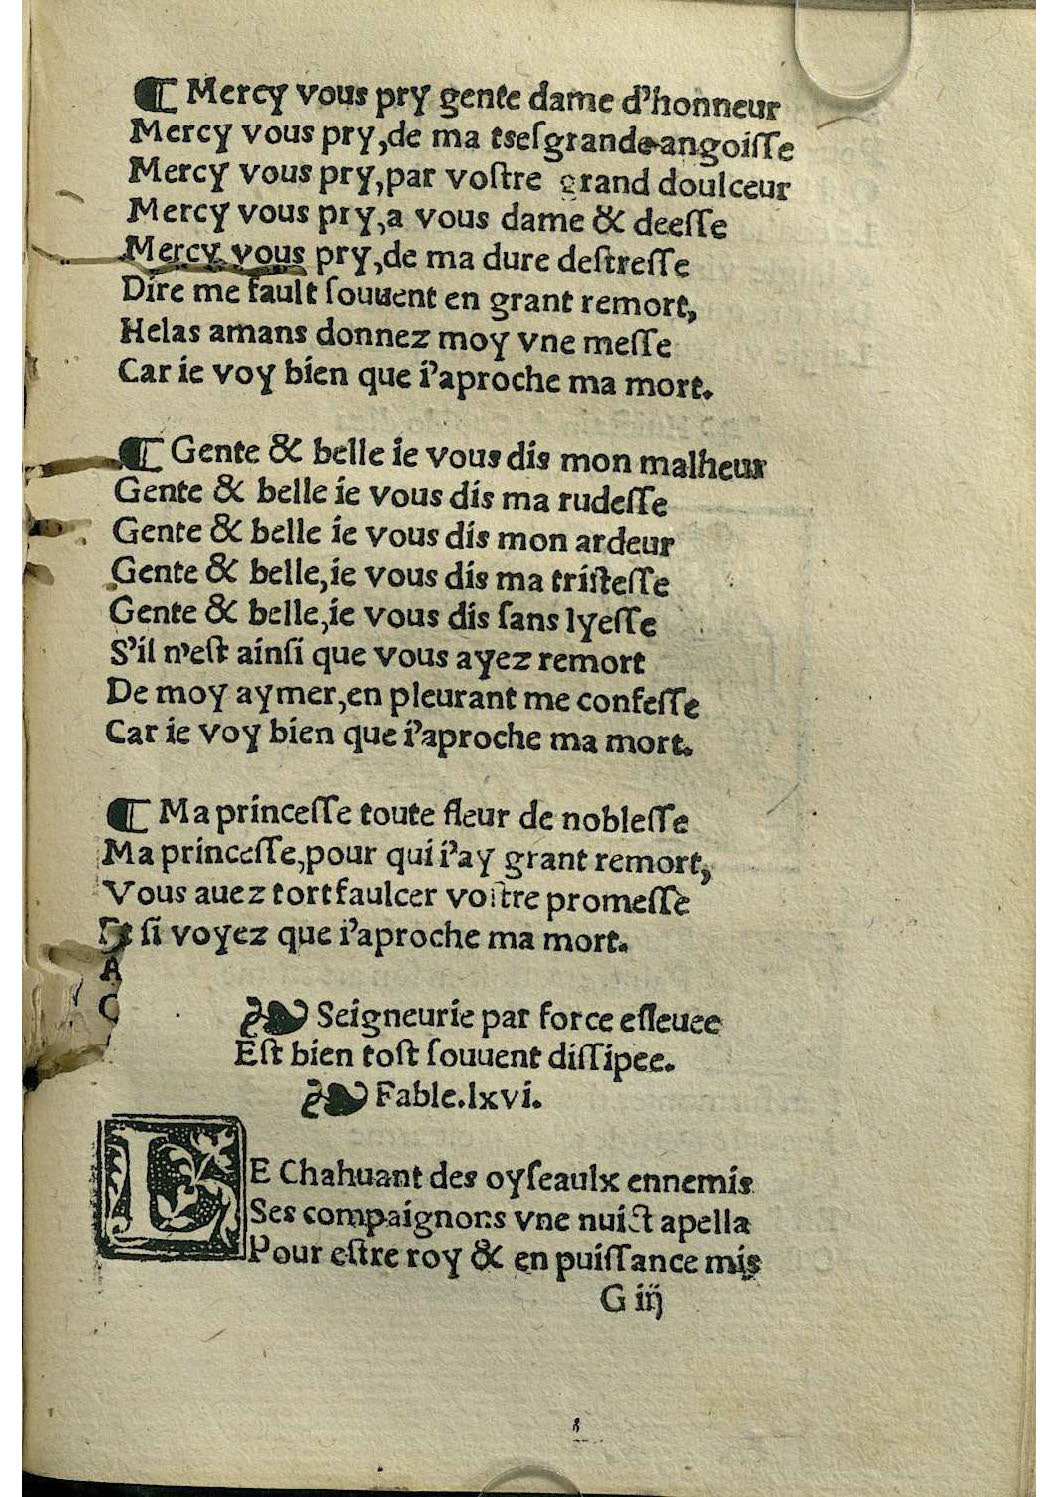 ¶ Mercy vous pry gente dame d'honneur
Mercy vous pry, de ma tseſgrande angoiſſe
Mercy vous pry, par voſtre grand doulceur
Mercy vous pry, a vous dame & deeſſe
Mercy vous pry, de ma dure deſtreſſe
Dire me fault ſouuent en grant remort,
Helas amans donnez moy vne meſſe
Car ie voy bien que i'aproche ma mort.
¶ Gente & belle ie vous dis mon malheur
Gente & belle ie vous dis ma rudeſſe
Gente & belle ie vous dis mon ardeur
Gente & belle, ie vous dis ma triſteſſe
Gente & belle, ie vous dis ſans lyeſſe
S'il n'eſt ainſi que vous ayez remort
De moy aymer, en pleurant me confeſſe
Car ie voy bien que i'aproche ma mort.
¶ Ma princeſſe toute fleur de nobleſſe
Ma princeſſe, pour qui i'ay grant remort,
Vous auez tort faulcer voſtre promeſſe
Et ſi voyez que i'aproche ma mort.
A
C
❧ Seigneurie par force eſleuee
Eſt bien toſt ſouuent diſſipee.
❧ Fable. lxvi.
LE Chahuant des oyſeaulx ennemis
Ses compaignons vne nuict apella
Pour eſtre roy & en puiſſance mis
G iij